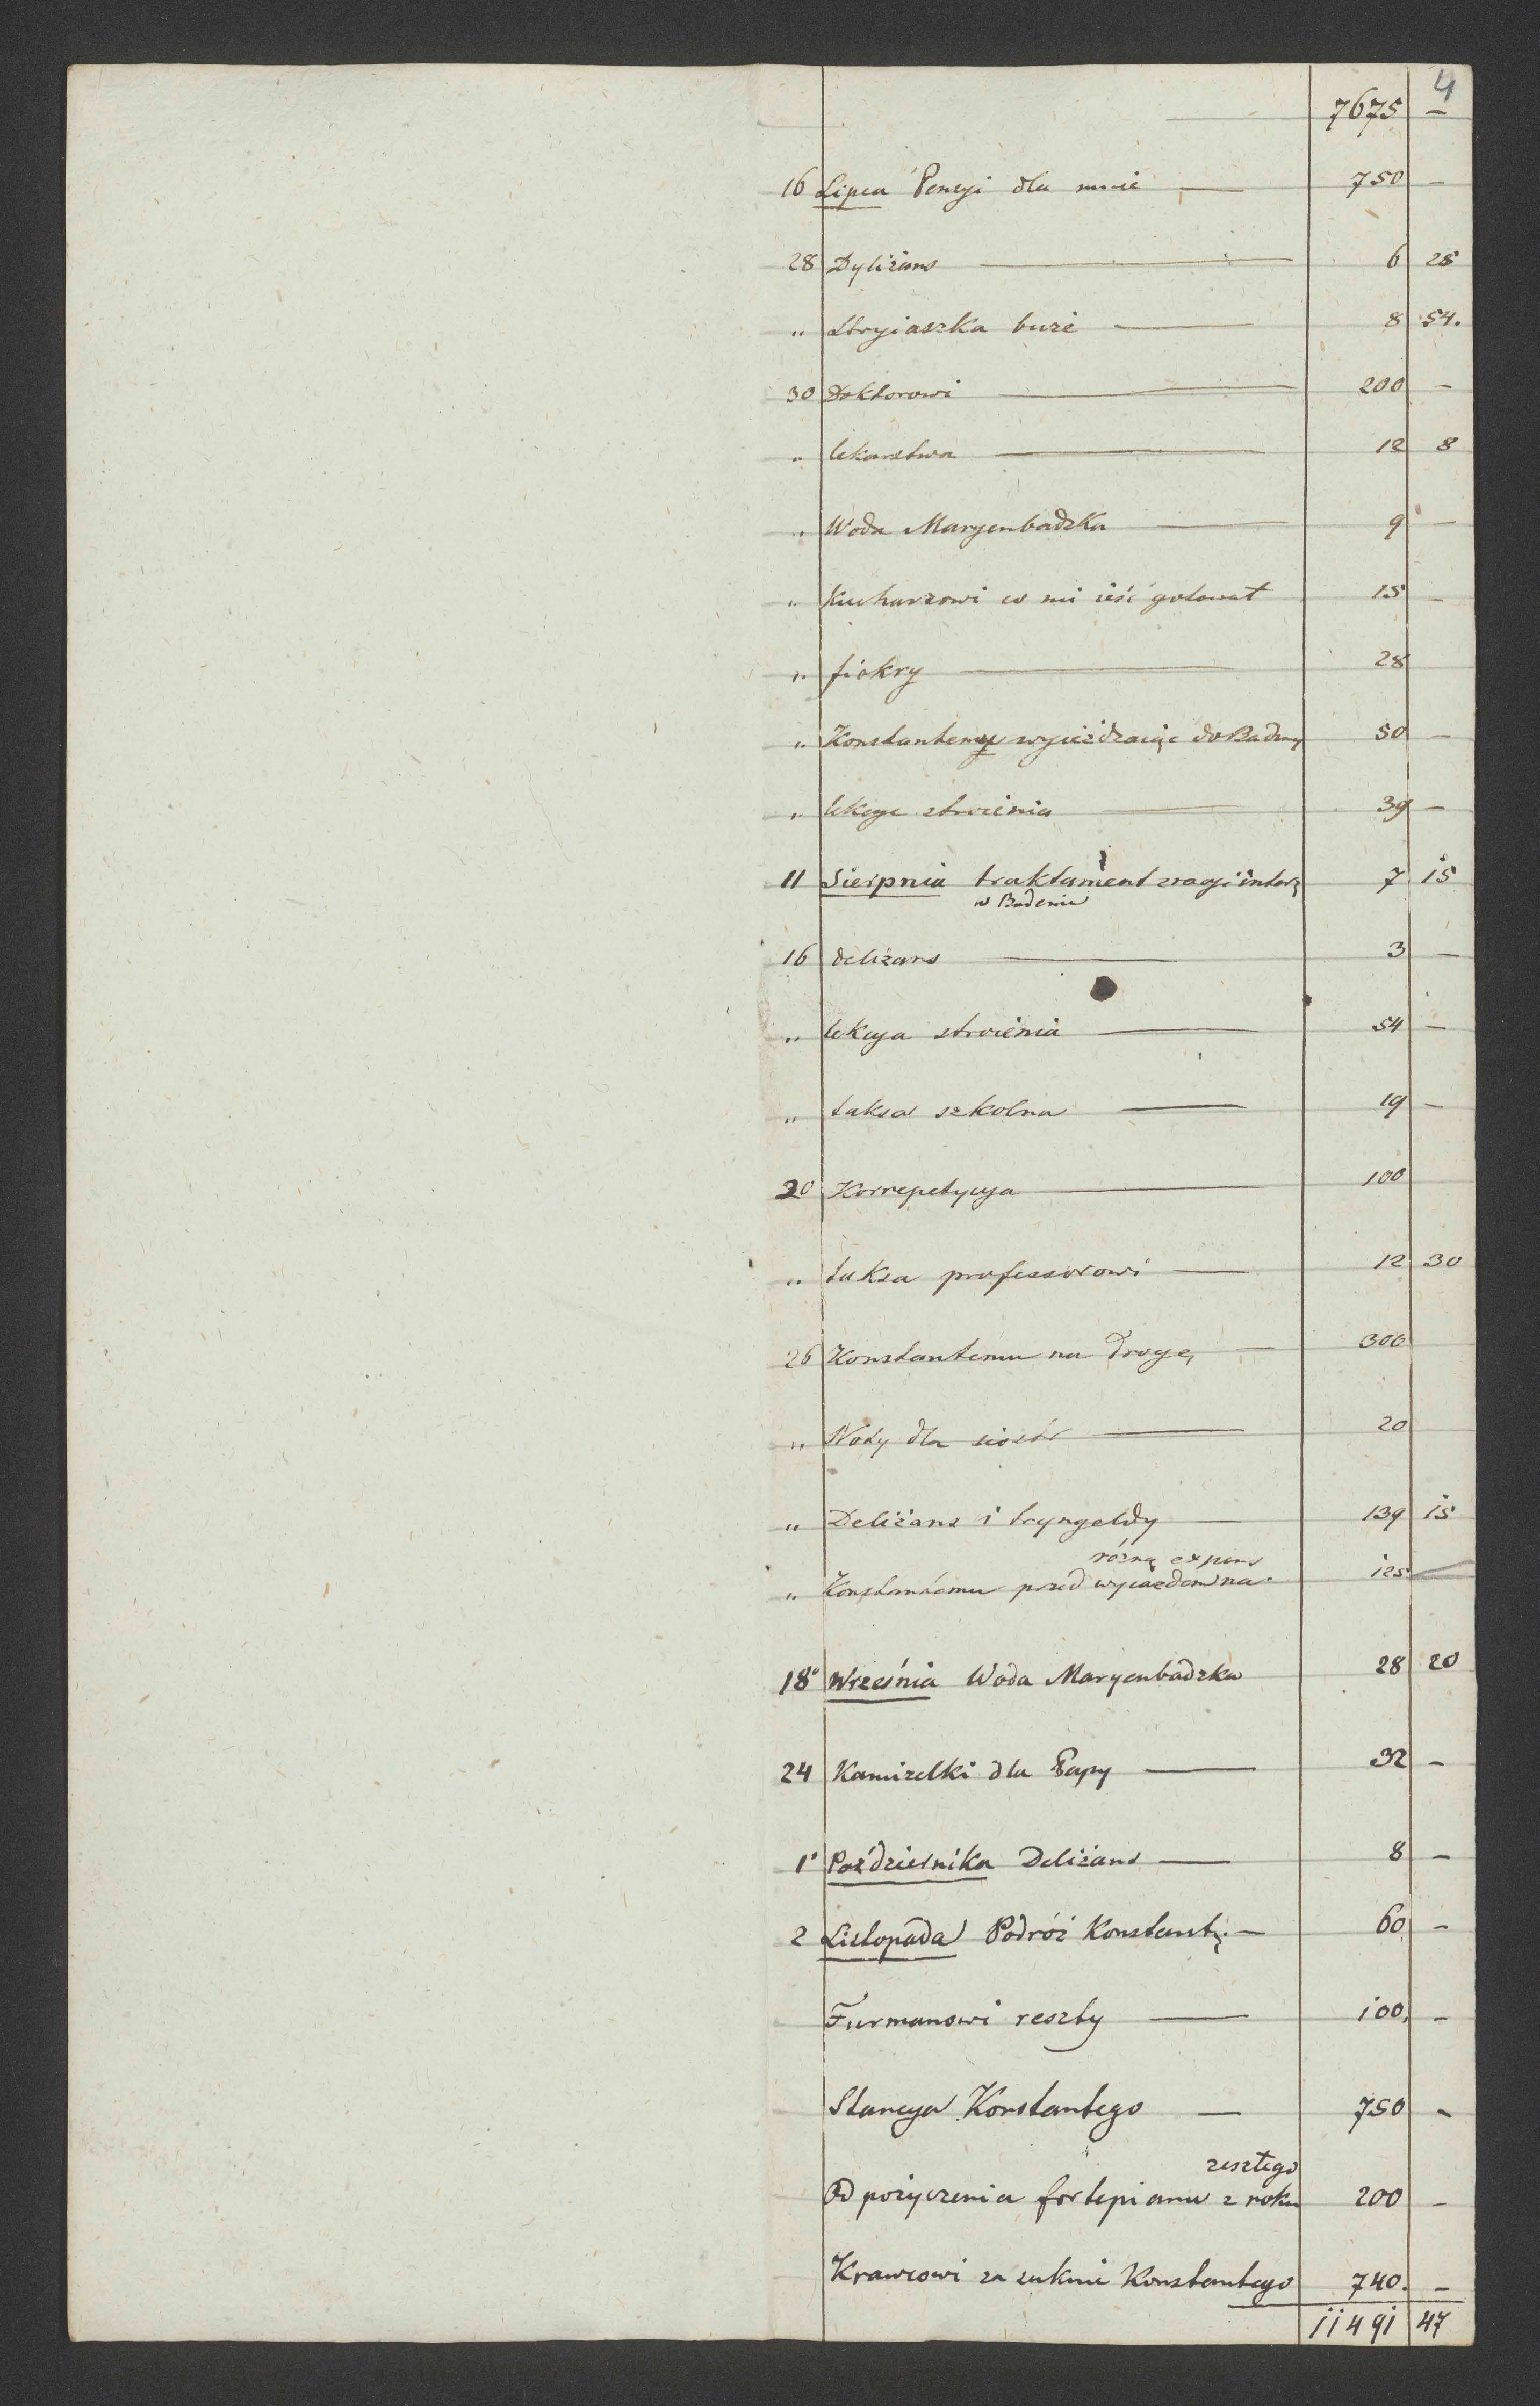 4
7675 —
16 Lipca Pensyi dla mnie — 750 —
28 Dyliżans — 6 25
„ Stryiaszka buzi — 8 54.
30 Doktorowi — 200 —
„ lekarstwa — 12 8
„ Woda Maryenbadzka — 9 —
„ Kucharzowi co mi ieść gotował 15 —
„ fiokry — 28
„ Konstantemu wyieżdzaiąc do Badeny 50 —
„ lekcye stroienia — 39 —
11 Sierpnia traktament 7 15
w Badenie
16 deliżans — 3 —
„ lekcya stroienia — 54 —
„ taksa szkolna — 19 —
20 Korrepetycya — 100
„ taksa professorowi — 12 30
26 Konstantemu na drogę — 300
„ Noty dla siostr — 20
„ Deliżans i tryngeldy — 139 15
różne expens
„ Konstantemu przed wyiazdem na 125 —
18° Września Woda Maryenbadzka 28 20
24 Kamizelki dla Papy — 32 —
1° Października Deliżans — 8 —
2 Listopada Podróż Konstant. — 60 —
Furmanowi reszty — 100. —
Stancya Konstantego — 750 —
zeszłego
Od pożyczenia fortepianu z roku 200 —
Krawcowi za suknie Konstantego 740. —
11491 47